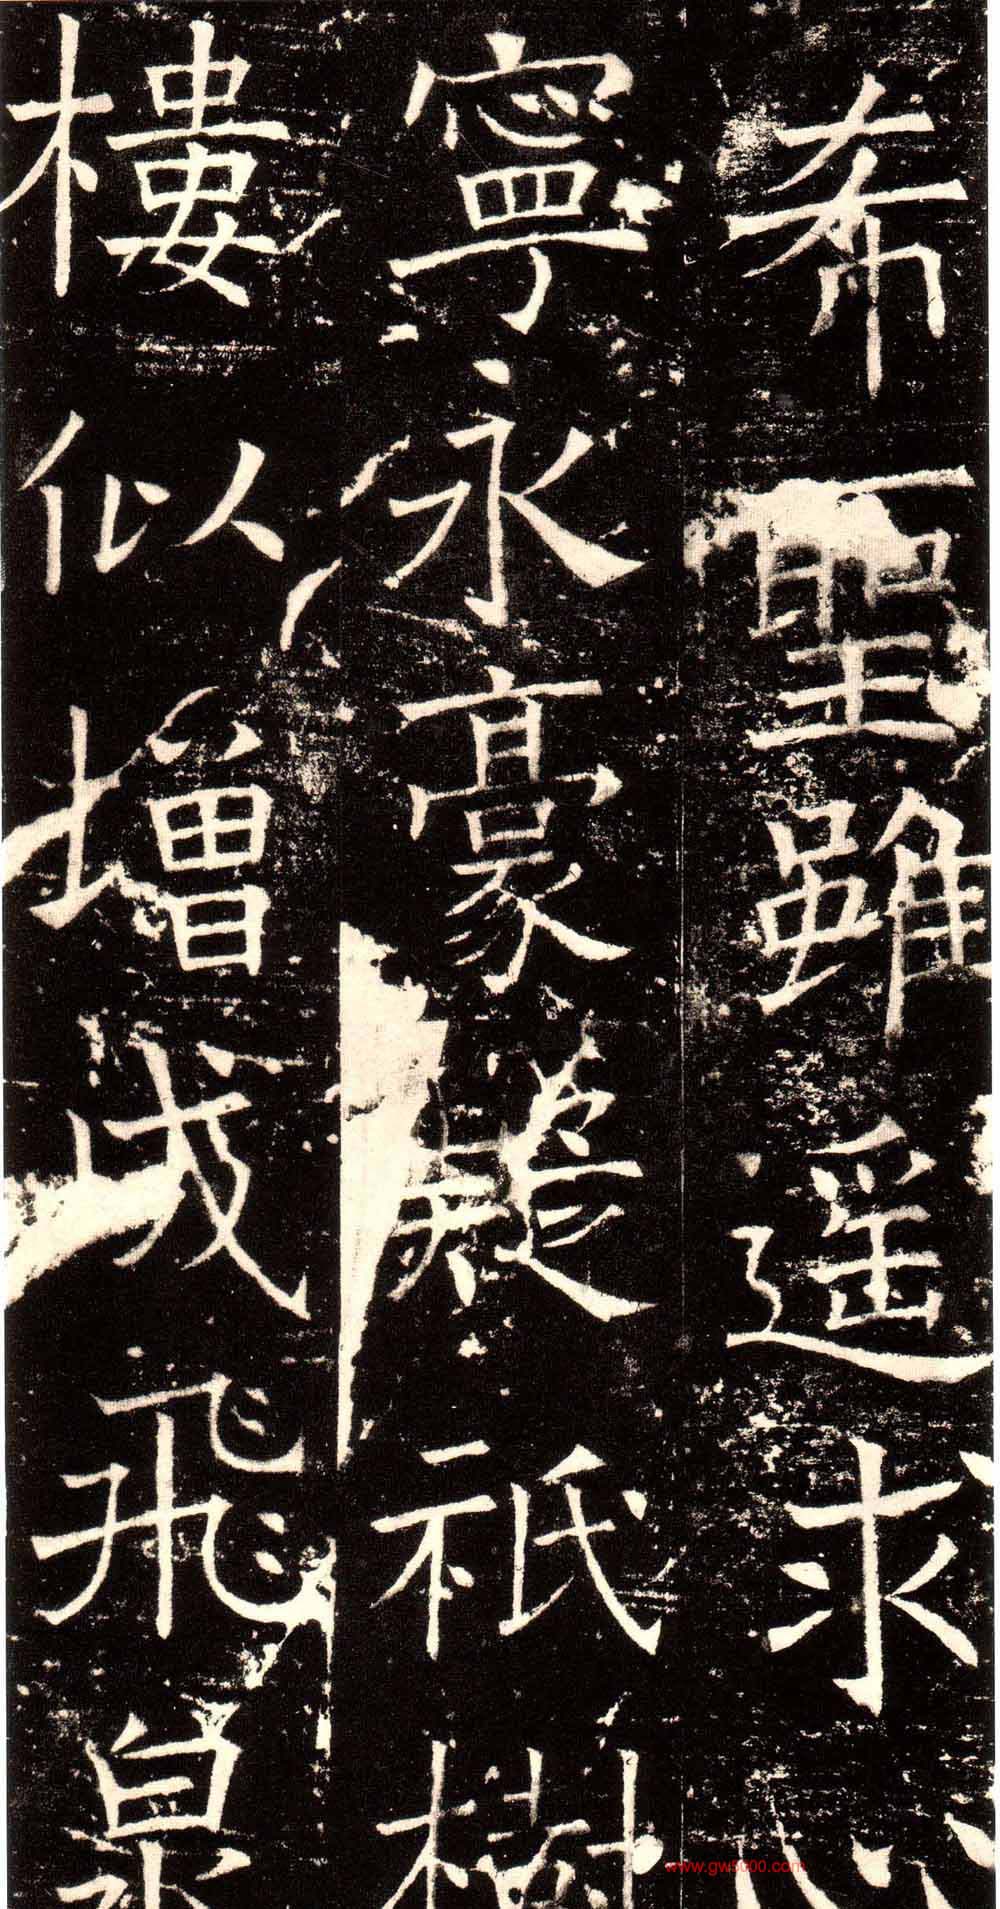 希聖雖遥求心
寧永豪疑祇樹
樓似增成飛泉
www.gw5000.com